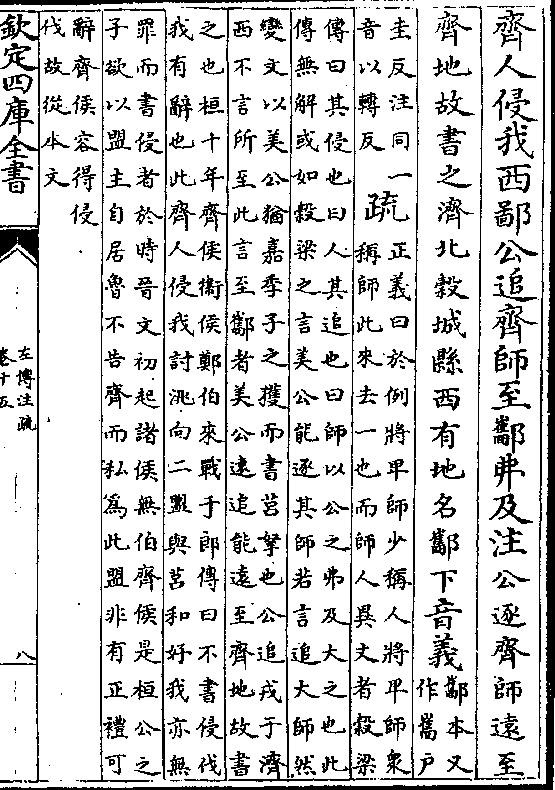 齊人侵我西鄙公追齊師至酅弗及注公逐齊師遠至
齊地故書之濟北穀城縣西有地名酅下音義
酅本又
作巂戶
圭反注同一
音以轉反
疏
正義曰於例將卑師少稱人將卑師衆
稱師此來去一也而師人異文者穀梁
傳曰其侵也曰人其追也曰師以公之弗及大之也此
傳無解或如穀梁之言美公能逐其師若言追大師然
變文以美公猶嘉季子之獲而書莒挐也公追戎于濟
西不言所至此言至酅者美公遠追能遠至齊地故書
之也桓十年齊侯衞侯鄭伯來戰于郎傳曰不書侵伐
我有辭也此齊人侵我討洮向二盟與莒和好我亦無
罪而書侵者於時晉文初起諸侯無伯齊侯是桓公之
子欲以盟主自居魯不告齊而私為此盟非有正禮可
辭齊侯容得侵
伐故從本文
欽定四庫全書
左傳注疏
卷十五
八